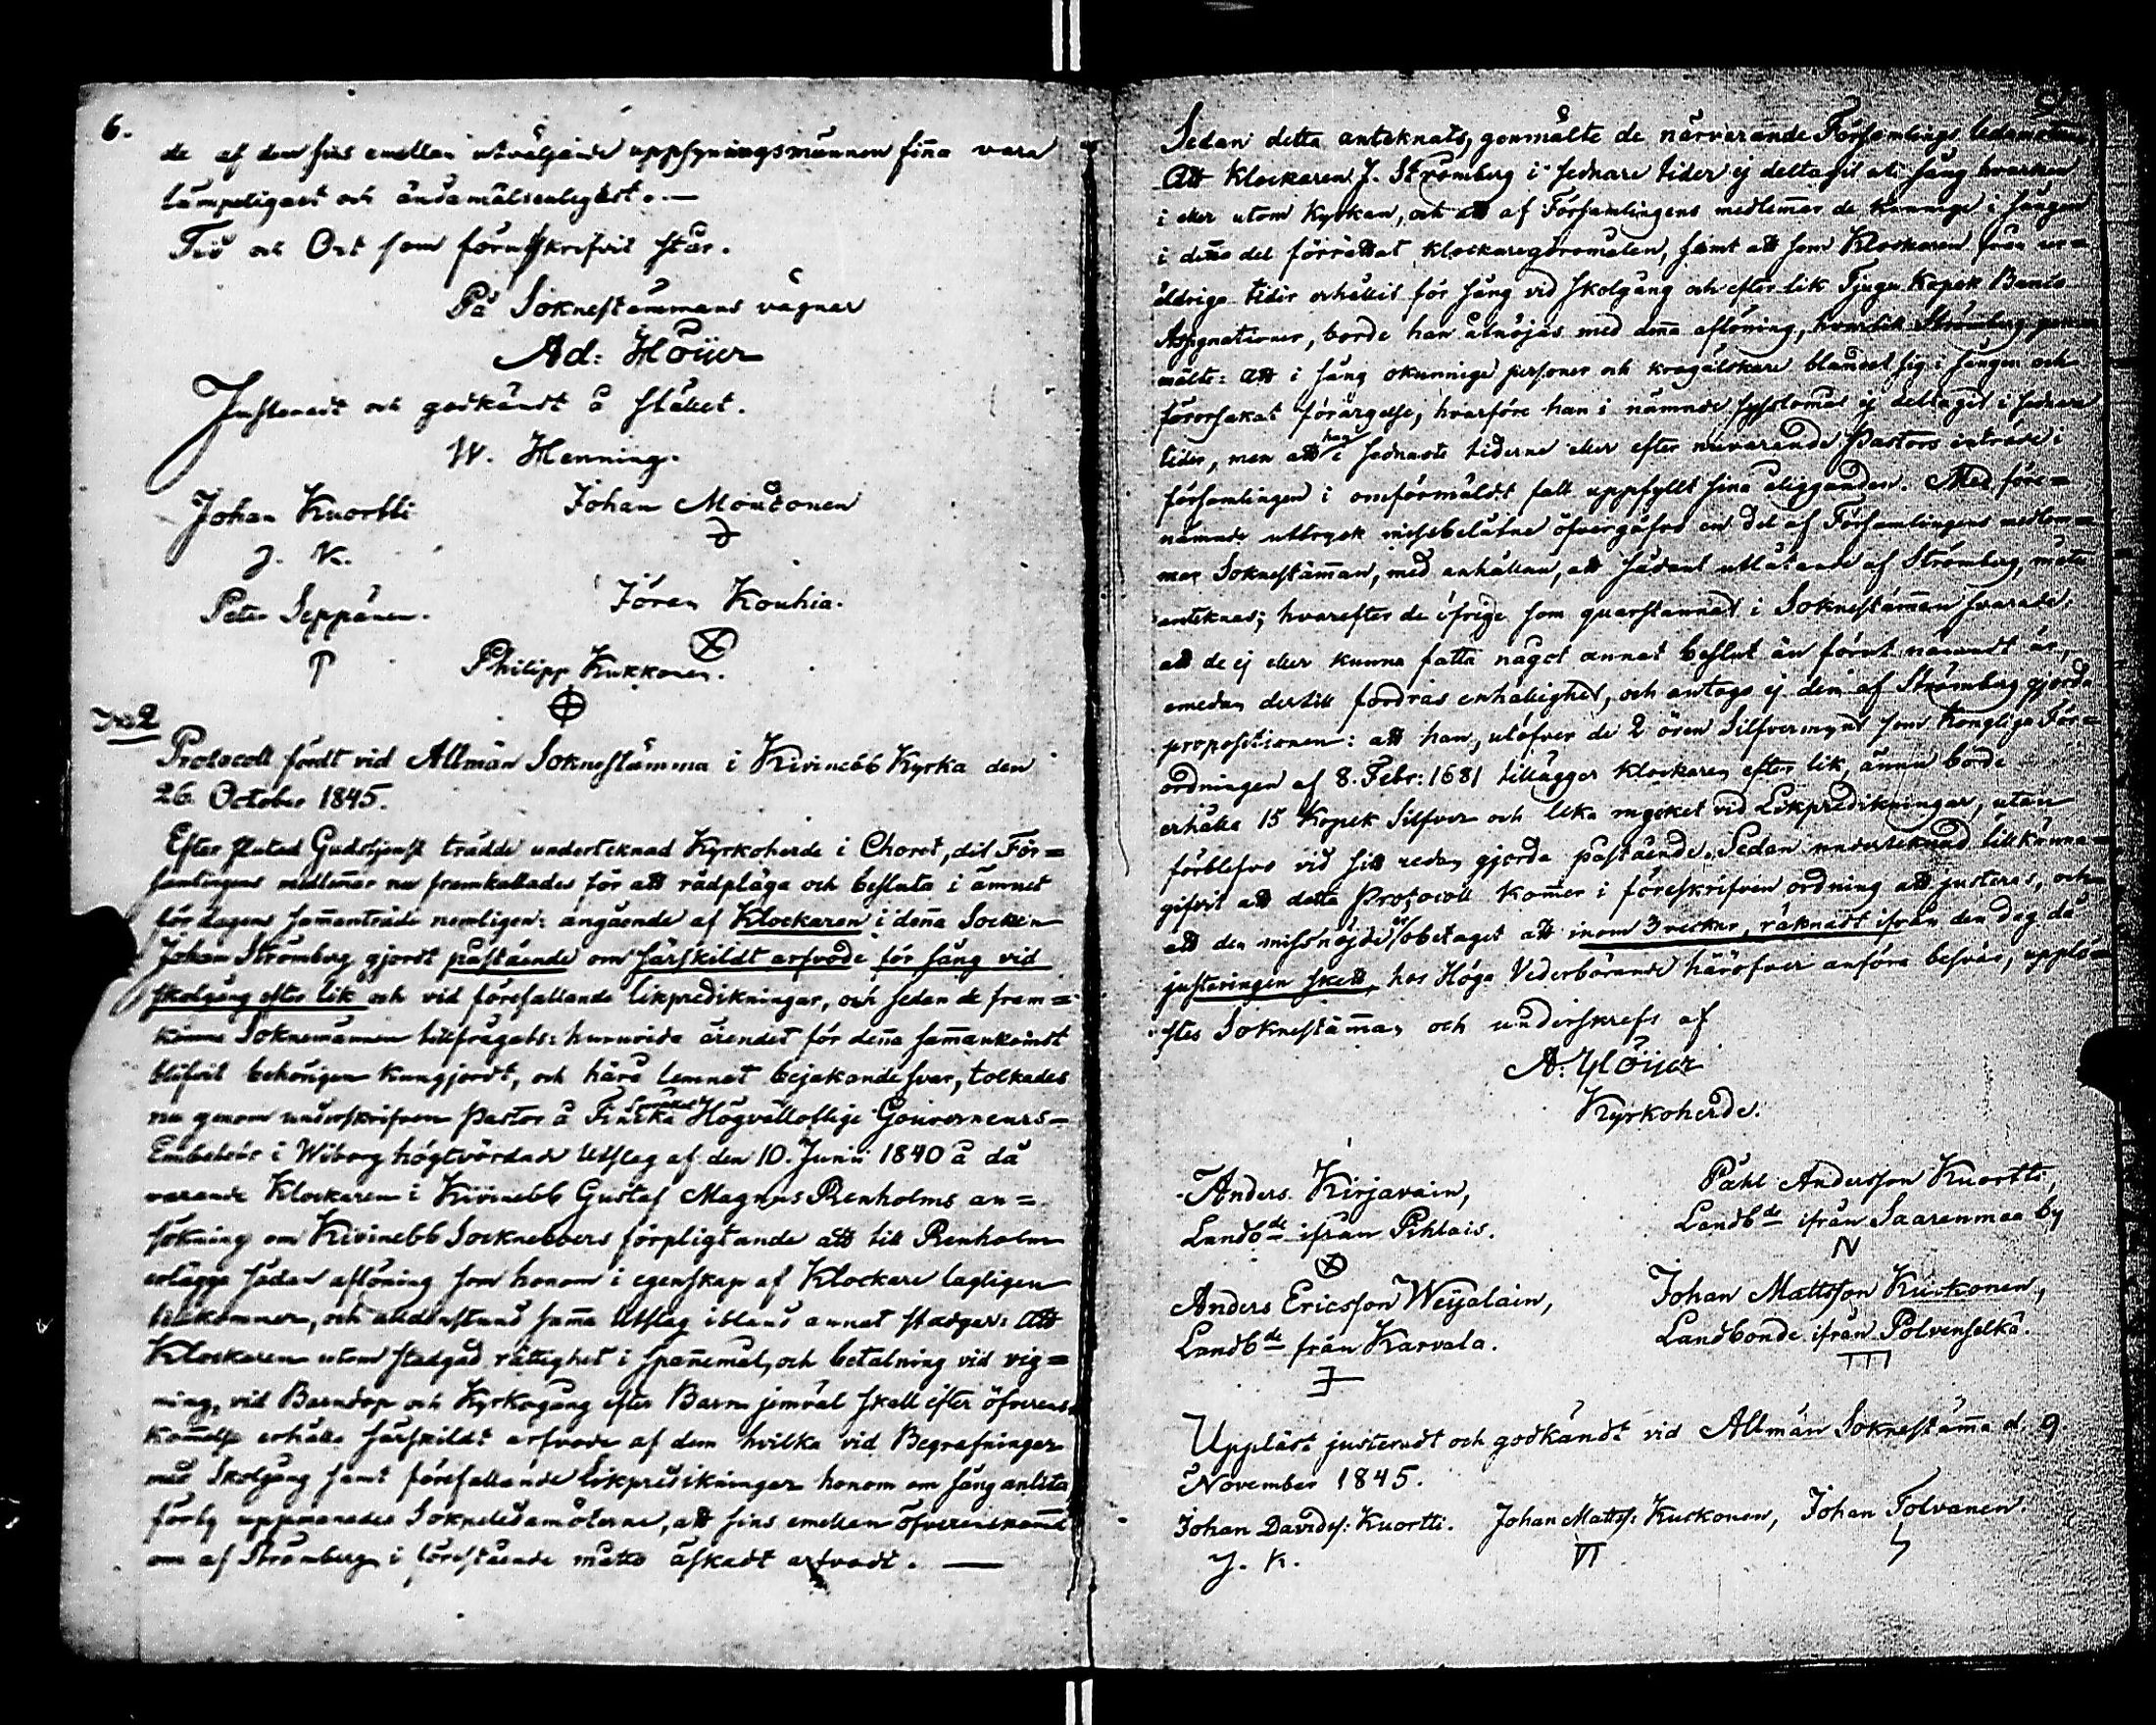 6.
de af dem sins emellan utväljande uppsyningsmännen finna vara
lämpeligast och ändamålsenligast. —
Tid och Ort som förut skrifvit står.
På Soknestämmans vägnar
Ad: Höijer
Justeradt och godkändt å stället.
W. Henning.
Johan Kuortti
Johan Mondonen
J. K.
Peter Seppänen.
Jören Kouhia.
Philipp Kukkonen.
No 2
Protocoll fördt vid Allmän Soknestämma i Kivinebb Kyrka den
26. October 1845.
Efter slutad Gudstjenst trädde undertecknad Kyrkoherde i Choret, dit För=
samlingens medlemar nu framkallades för att rådpläga och besluta i ämnet
för dagens samenträde nemligen: angående af Klockaren i dena Socken
Johan Strömberg gjordt påstående om särskildt arfvode för sång vid
skolgång efter lik och vid förefallande likpredikningar, och sedan de fram=
komne Soknemännen tillfrågats: huruvida ärendet för dena samankomst
blifvit behörigen kungjordt, och härå lemnat bejakande svar, tolkades
nu genom underskrifven Pastor å Finska språket Högvälloflige Gouverneurs=
Embetets i Wiborg högtvördade Utslag af den 10. Junii 1840 å då
varande Klockaren i Kivinebb Gustaf Magnus Renholms an=
sökning om Kivinebb Sockneboers förpligtande att till Renholm
erlägga sådan aflöning som honom i egenskap af Klockare lagligen
tillkommer, och alldenstund sama Utslag ibland annat stadgar: Att
Klockaren utom stadgad rättighet i spanemål, och betalning vid vig=
ning, vid Barndop och Kyrkogång efter Barn jemväl skall efter öfverens
komelse erhålla särskildt arfvode af dem hvilka vid Begrafningar
med Skolgång samt förefallande Likpredikningar honom om sång anlita
förty uppmanades Sokneledamöterne, att sins emellan öfverenskoma
om af Strömberg i förestående matto äskadt arfvodt. —
Sedan detta antecknats, genmälte de närvarande Församlings ledamöterne
Att Klockaren J. Strömberg i sednare tider ej deltagit uti sång hvarken
i eller utom Kyrkan, och att af Församlingens medlemar de kunnige i sången
i dess del förrättat klockaregöromålen, samt att som Klockaren från ur=
åldriga tider erhållit för sång vid skolgång och efter lik Tjugu Kopek Banco
Assignationer, borde han åtnöjas med dena aflöning, hvartill Strömberg gen
mälte: att i sång okunnige personer och krogälskare blandat sig i sången och
förorsakat förargelse, hvarföre han i nämnde ej deltagit i sednare
tider, men att han i sednaste tiderne eller efter nuvarande Pastors inträde i
församlingen i omförmäldt fall uppfyllt sina åligganden. Med före=
nämnde uttryck missbelåtne öfvergåfvo en del af Församlingens medlem=
mar Soknestäman, med anhållan, att sådant utlåtande af Strömberg måtte
antecknas; hvarefter de öfrige som quarstannat i Soknestäman svarade:
att de ej eller kunna fatta något annat beslut än förut nämndt är,
emedan dertill fordras enhällighet, och antogs ej den af Strömberg gjorda
propositionen: att han, utöfver de 2 ören Silfvermynt som Kongliga För=
ordningen af 8. Febr: 1681 tillägger klockaren efter lik, ännu borde
erhålla 15 Kopek Silfver och lika mycket vid Likpredikningar, utan
förblefvo vid sitt redan gjorda påstående. Sedan undertecknad tillkänna=
gifvit att detta Protocoll komer i föreskrifven ordning att justeras, och
att den missnöjde är obetaget att inom 3 veckor, räknadt ifrån den dag då
justeringen skett, hos Höga Vederbörande häröfver anföra besvär, upplö=
stes Soknestäman, och underskrefs af
A. Höijer
Kyrkoherde.
Anders Kirjavain,
Landbde ifrån Pihlais.
Påhl Andersson Kuortti,
Landbde ifrån Saarenmaa by
Anders Ericsson Weijalain,
Landbde från Karvala.
Johan Mattsson Kuckonen,
Landbonde ifrån Polvenselkä.
Uppläst justeradt och godkändt vid Allmän Soknestäma d. 9.
November 1845.
Johan Davids: Kuortti. Johan Matts: Kuckonen, Johan Tolvanen
J. K.